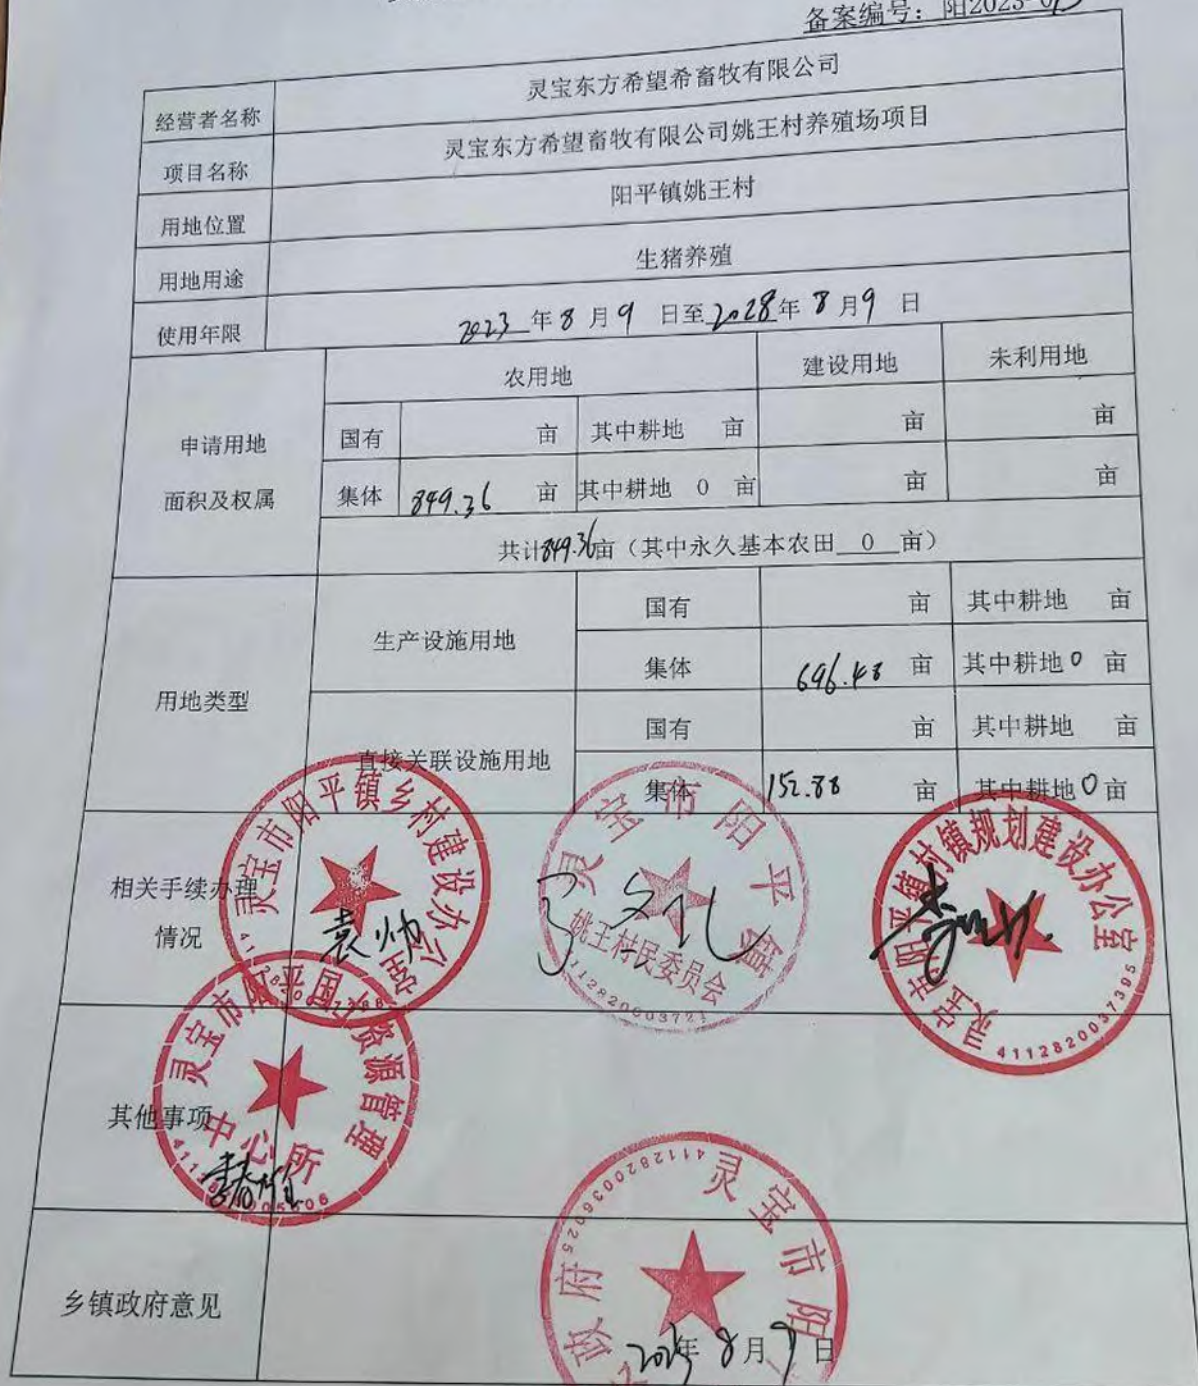 备案编号：阳2023-0
经营者名称 灵宝东方希望希畜牧有限公司
项目名称 灵宝东方希望畜牧有限公司姚王村养殖场项目
用地位置 阳平镇姚王村
用地用途 生猪养殖
使用年限 2023年8月9日至2028年8月9日
申请用地面积及权属 农用地 建设用地 未利用地
国有 亩 其中耕地 亩 亩 亩
集体 849.36 亩 其中耕地 0 亩 亩 亩
共计849.36亩（其中永久基本农田 0 亩）
用地类型 生产设施用地 国有 亩 其中耕地 亩
集体 696.48 亩 其中耕地0亩
直接关联设施用地 国有 亩 其中耕地 亩
集体 152.88 亩 其中耕地0亩
相关手续办理情况
灵宝市阳平镇乡村建设办公室
袁帅
灵宝市阳平镇
姚王村民委员会
灵宝市阳平镇村镇规划建设办公室
4112820037395
其他事项
灵宝市阳平国土资源管理
中心所
乡镇政府意见
灵宝市阳
政府
4112820036025
2023年8月9日